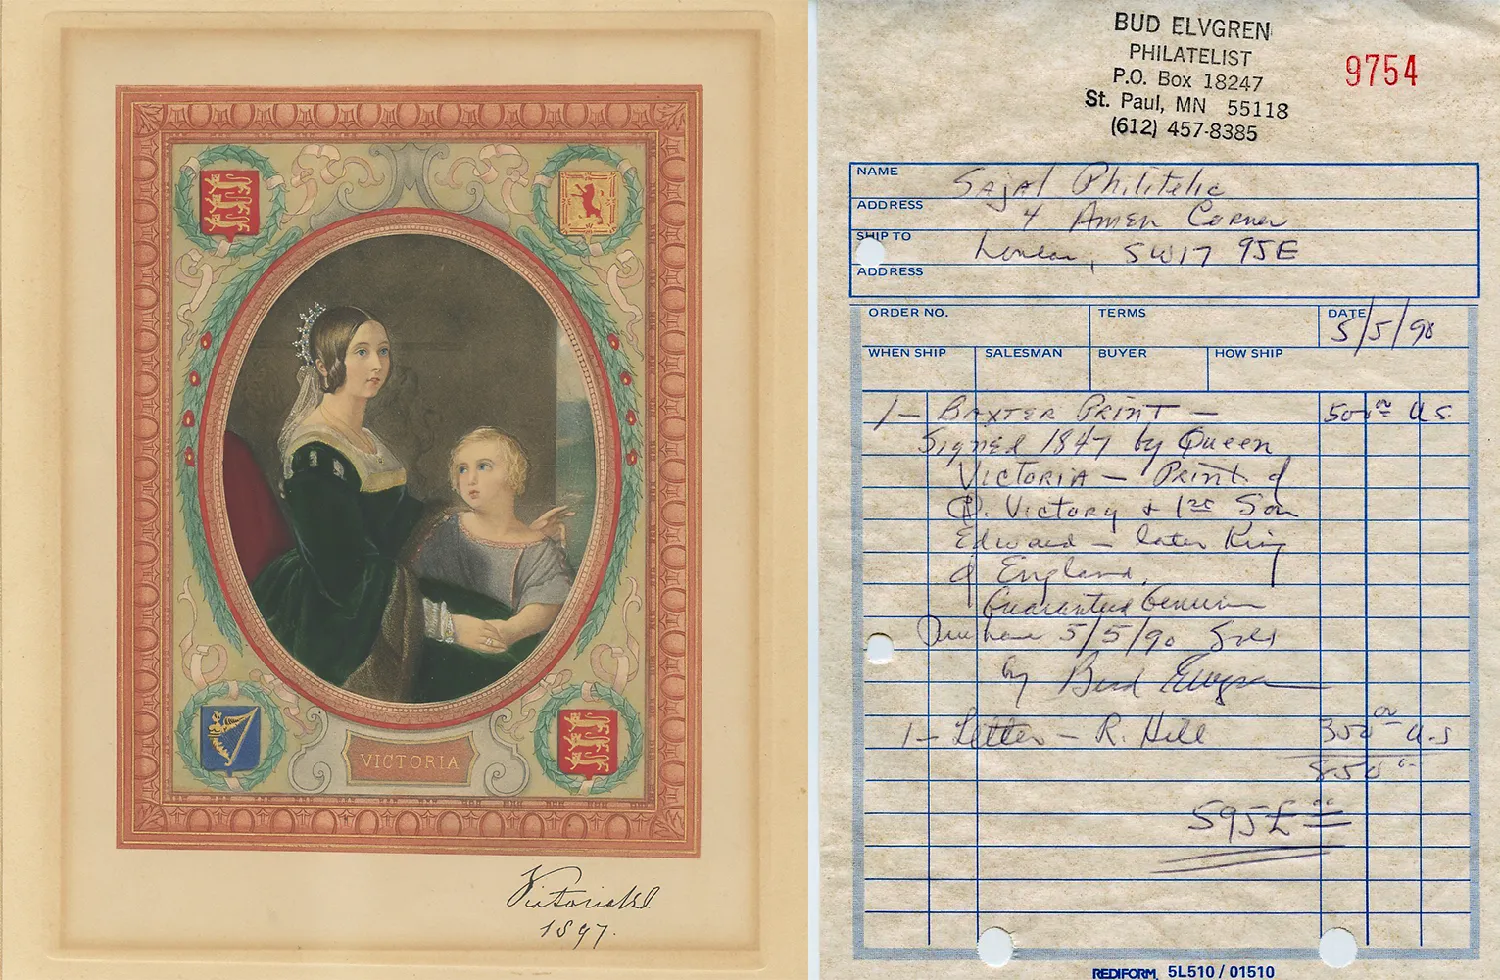 VICTORIA
Victoria RI
1897.
BUD ELVGREN
PHILATELIST
P.O. Box 18247
St. Paul, MN 55118
(612) 457-8385
9754
NAME Sajal Philitelic
ADDRESS 4 Amen Corner
SHIP TO London, SW17 9JE
ADDRESS
ORDER NO. TERMS DATE 5/5/90
WHEN SHIP SALESMAN BUYER HOW SHIP
1- BAXTER PRINT - 500 00 U.S.
Signed 1847 by Queen
VICTORIA - PRINT of
Q. Victory & 1st Son
Edward - later King
of England.
Guaranteed Genuine
5/5/90 Sold
by Bud Elvgren
1- Letter - R. Hill 350 00 U.S
850 00
595£ 00
REDIFORM 5L510 / 01510